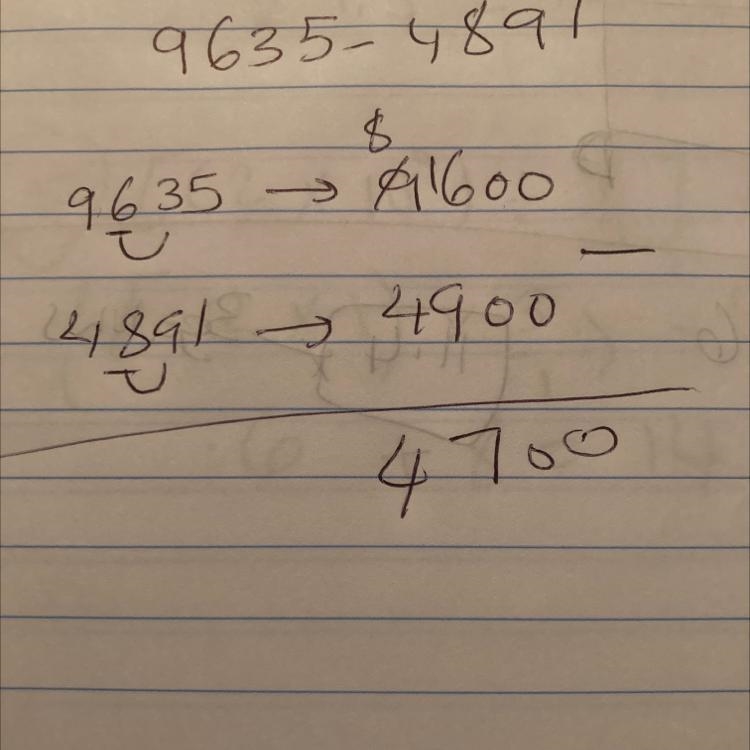 9635 - 4891
8
9635 → 91600
—
4891 → 4900
4700